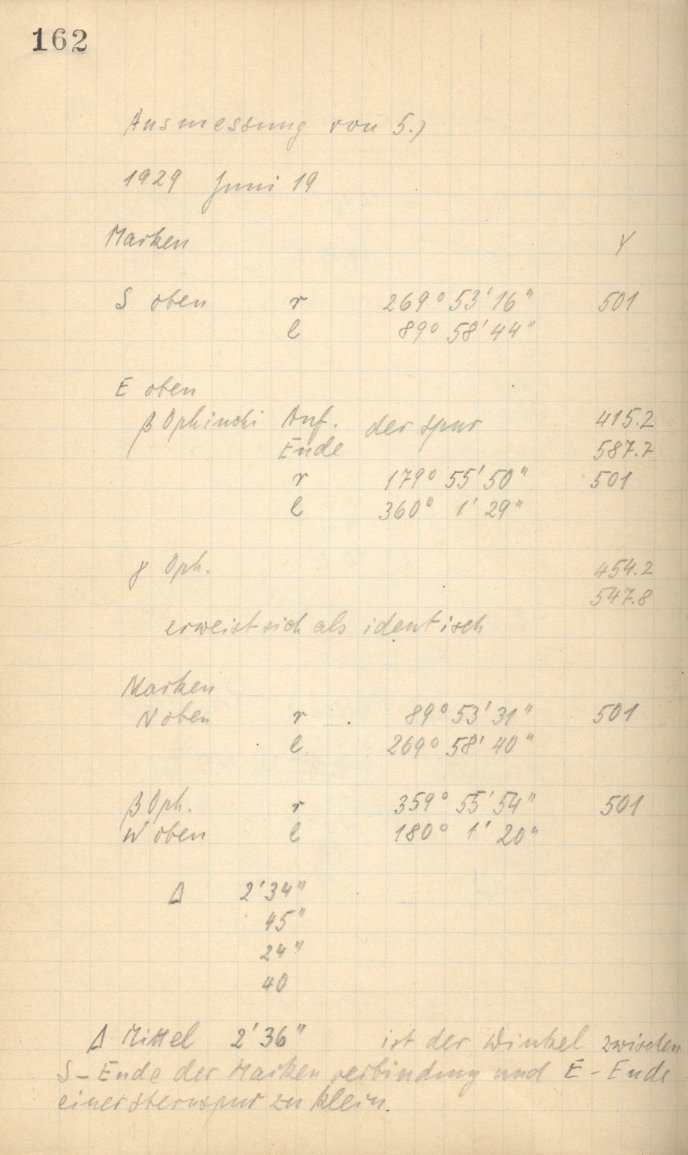 162
Ausmessung von 5.)
1929 Juni 19
Marken Y
S oben r 269° 53' 16" 501
l 89° 58' 44"
E oben
β Ophiuchi Anf. der Spur 415.2
Ende 587.7
r 179° 55' 50" 501
l 360° 1' 29"
γ Oph. 454.2
547.8
erweist sich als identisch
Marken
N oben r 89° 53' 31" 501
l 269° 58' 40"
β Oph. r 359° 55' 54" 501
W oben l 180° 1' 20"
Δ 2' 34"
45"
24"
40
Δ Mittel 2' 36" ist der Winkel zwischen
S-Ende der Markenverbindung und E-Ende
einer Sternspur zu klein.